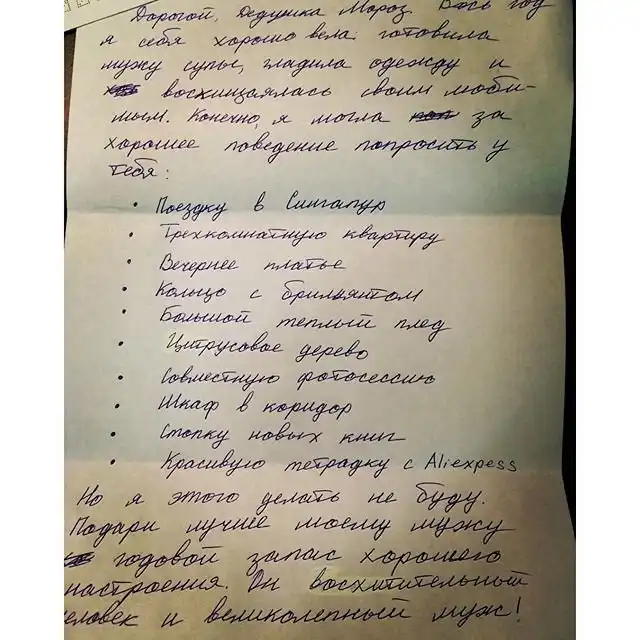 Дорогой, Дедушка Мороз. Весь год
я себя хорошо вела: готовила
мужу супы, гладила одежду и
восхищаялась своим люби-
мым. Конечно, я могла за
хорошее поведение попросить у
тебя:
• Поездку в Сингапур
• Трехкомнатную квартиру
• Вечернее платье
• Кольцо с брильянтом
• Большой теплый плед
• Цитрусовое дерево
• Совместную фотосессию
• Шкаф в коридор
• Стопку новых книг
• Красивую тетрадку с Aliexpess
Но я этого делать не буду.
Подари лучше моему мужу
годовой запас хорошего
настроения. Он восхитительный
человек и великолепный муж!